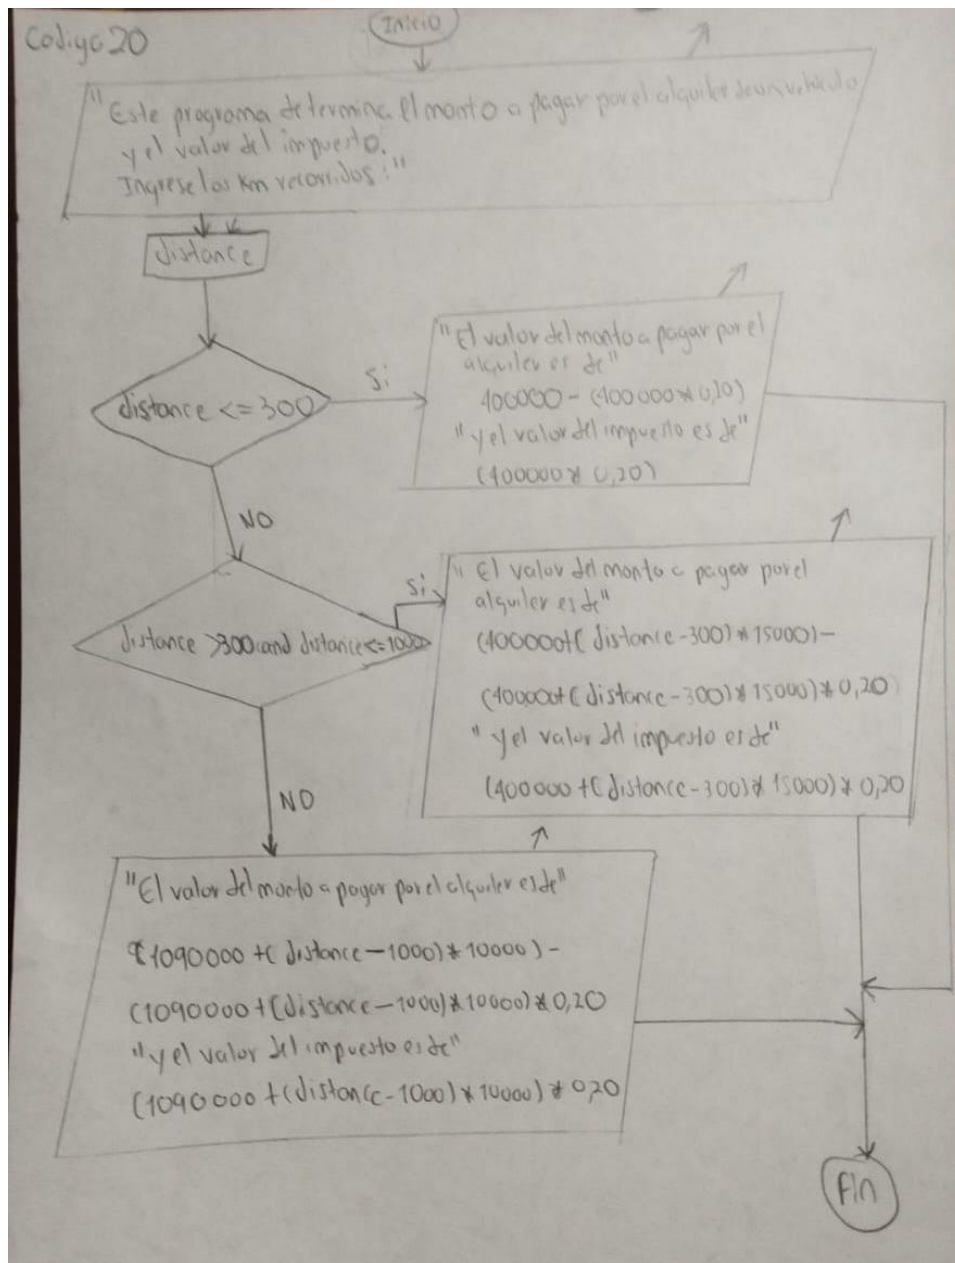 Codigo 20
Inicio
"Este programa determina el monto a pagar por el alquiler de un vehiculo
y el valor del impuesto.
Ingrese los Km recorridos:"
distance
distance <= 300
Si
"El valor del monto a pagar por el
alquiler es de"
400000 - (400000 * 0,20)
"y el valor del impuesto es de"
(400000 * 0,20)
NO
distance >300 and distance <= 1000
Si
"El valor del monto a pagar por el
alquiler es de"
(400000+( distance -300) * 15000) -
(400000+( distance - 300) * 15000) * 0,20
"y el valor del impuesto es de"
(400000 +( distance - 300) * 15000) * 0,20
NO
"El valor del monto a pagar por el alquiler es de"
(1090000 +( distance - 1000) * 10000) -
(1090000 +(distance - 1000) * 10000) * 0,20
"y el valor del impuesto es de"
(1090000 +(distance - 1000) * 10000) * 0,20
Fin